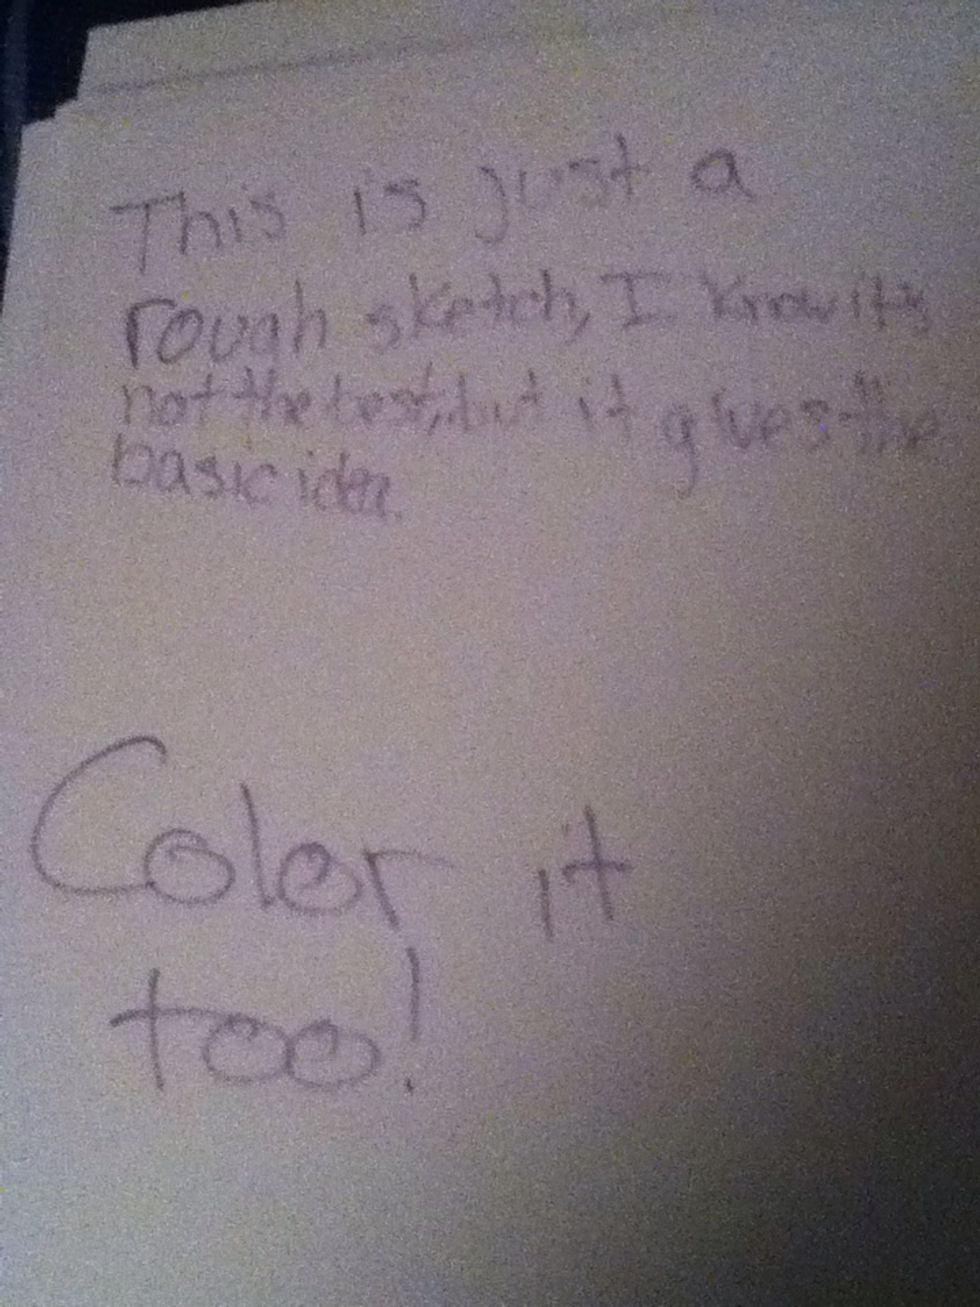 This is just a
rough sketch, I know it's
not the best, but it gives the
basic idea.
Color it
too!